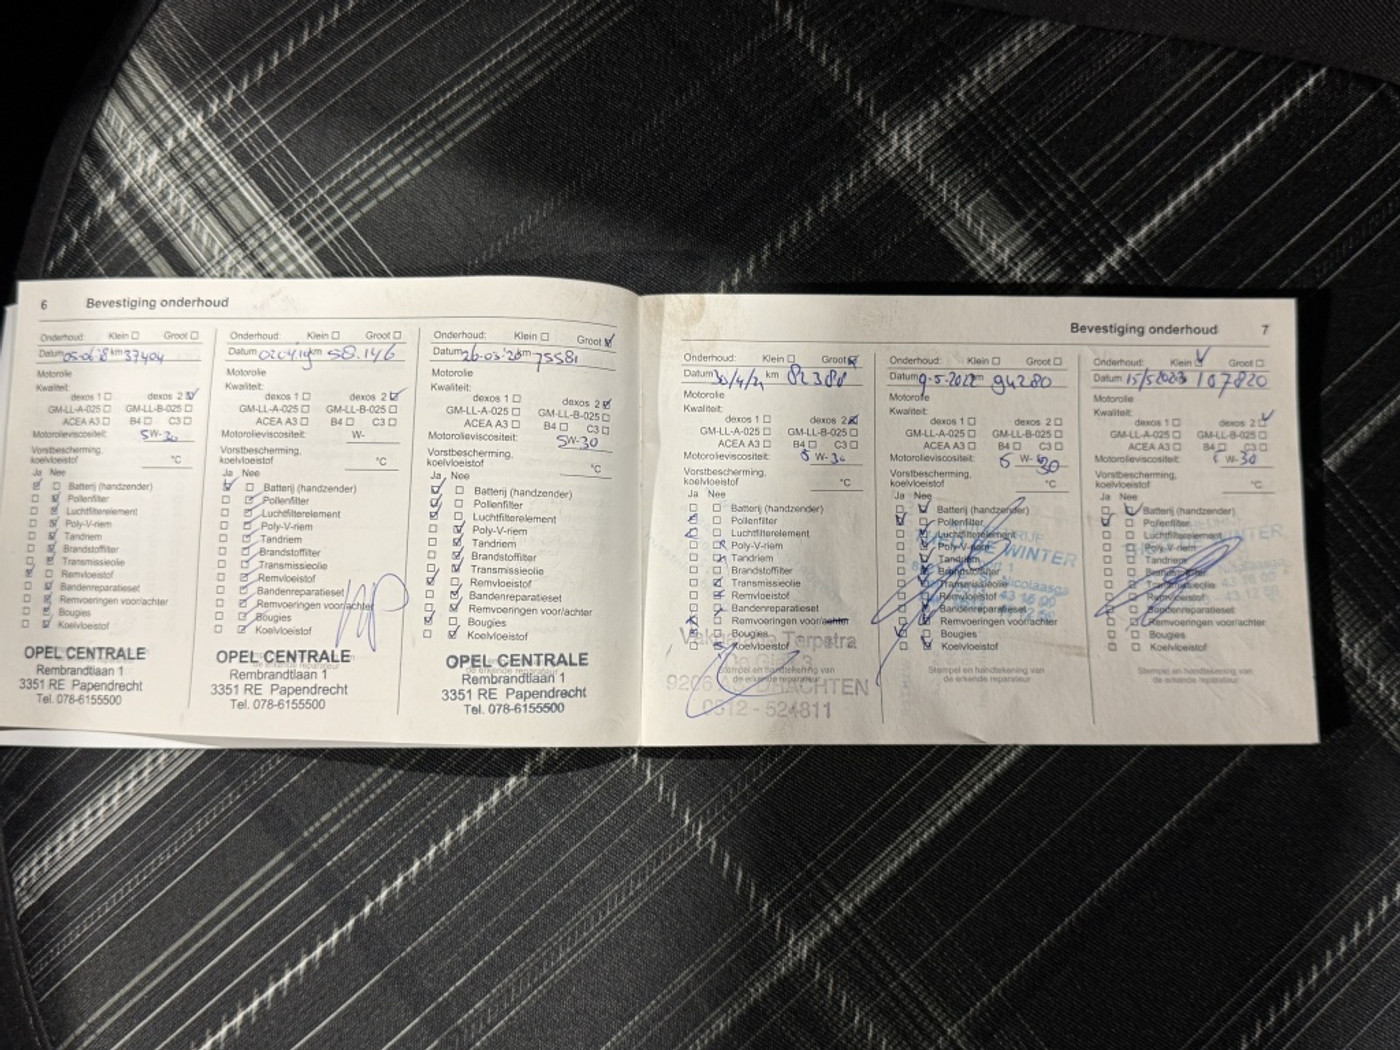 6 Bevestiging onderhoud
Onderhoud: Klein Groot
Datum 05-06-18 km 37404
Motorolie
Kwaliteit:
dexos 1 dexos 2
GM-LL-A-025 GM-LL-B-025
ACEA A3 B4 C3
Motorolieviscositeit: 5W-30
Vorstbescherming,
koelvloeistof °C
Ja Nee
Batterij (handzender)
Pollenfilter
Luchtfilterelement
Poly-V-riem
Tandriem
Brandstoffilter
Transmissieolie
Remvloeistof
Bandenreparatieset
Remvoeringen voor/achter
Bougies
Koelvloeistof
OPEL CENTRALE
Rembrandtlaan 1
3351 RE Papendrecht
Tel. 078-6155500
Onderhoud: Klein Groot
Datum 02.04.19 km 58.146
Motorolie
Kwaliteit:
dexos 1 dexos 2
GM-LL-A-025 GM-LL-B-025
ACEA A3 B4 C3
Motorolieviscositeit: W-
Vorstbescherming,
koelvloeistof °C
Ja Nee
Batterij (handzender)
Pollenfilter
Luchtfilterelement
Poly-V-riem
Tandriem
Brandstoffilter
Transmissieolie
Remvloeistof
Bandenreparatieset
Remvoeringen voor/achter
Bougies
Koelvloeistof
OPEL CENTRALE
Rembrandtlaan 1
3351 RE Papendrecht
Tel. 078-6155500
Onderhoud: Klein Groot
Datum 26-03-20 km 75581
Motorolie
Kwaliteit:
dexos 1 dexos 2
GM-LL-A-025 GM-LL-B-025
ACEA A3 B4 C3
Motorolieviscositeit: 5W-30
Vorstbescherming,
koelvloeistof °C
Ja Nee
Batterij (handzender)
Pollenfilter
Luchtfilterelement
Poly-V-riem
Tandriem
Brandstoffilter
Transmissieolie
Remvloeistof
Bandenreparatieset
Remvoeringen voor/achter
Bougies
Koelvloeistof
OPEL CENTRALE
Rembrandtlaan 1
3351 RE Papendrecht
Tel. 078-6155500
Bevestiging onderhoud 7
Onderhoud: Klein Groot
Datum 30/4/21 km 82388
Motorolie
Kwaliteit:
dexos 1 dexos 2
GM-LL-A-025 GM-LL-B-025
ACEA A3 B4 C3
Motorolieviscositeit: 5 W-30
Vorstbescherming,
koelvloeistof °C
Ja Nee
Batterij (handzender)
Pollenfilter
Luchtfilterelement
Poly-V-riem
Tandriem
Brandstoffilter
Transmissieolie
Remvloeistof
Bandenreparatieset
Remvoeringen voor/achter
Bougies
Koelvloeistof
Terpstra
Stempel en handtekening van
de erkende reparateur
DRACHTEN
0512 - 524811
Onderhoud: Klein Groot
Datum 9-5-2022 94280
Motorolie
Kwaliteit:
dexos 1 dexos 2
GM-LL-A-025 GM-LL-B-025
ACEA A3 B4 C3
Motorolieviscositeit: 5 W-30
Vorstbescherming,
koelvloeistof °C
Ja Nee
Batterij (handzender)
Pollenfilter
Luchtfilterelement
Poly-V-riem
Tandriem
Brandstoffilter
Transmissieolie
Remvloeistof
Bandenreparatieset
Remvoeringen voor/achter
Bougies
Koelvloeistof
WINTER
Stempel en handtekening van
de erkende reparateur
Onderhoud: Klein Groot
Datum 15/5 2023 107820
Motorolie
Kwaliteit:
dexos 1 dexos 2
GM-LL-A-025 GM-LL-B-025
ACEA A3 B4 C3
Motorolieviscositeit: W-30
Vorstbescherming,
koelvloeistof °C
Ja Nee
Batterij (handzender)
Pollenfilter
Luchtfilterelement
Poly-V-riem
Tandriem
Brandstoffilter
Transmissieolie
Remvloeistof
Bandenreparatieset
Remvoeringen voor/achter
Bougies
Koelvloeistof
WINTER
Stempel en handtekening van
de erkende reparateur